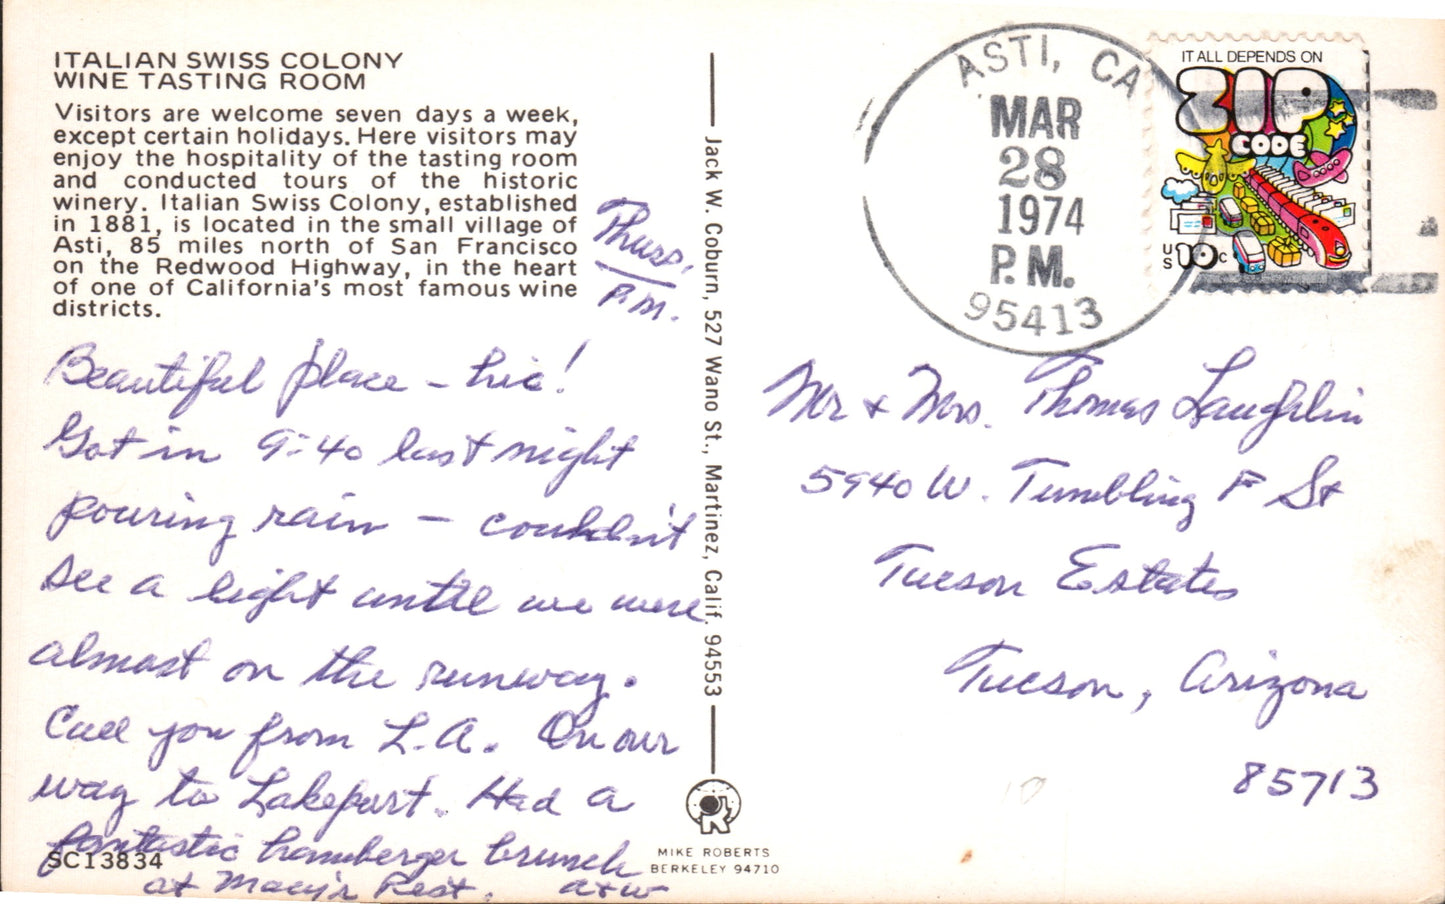 ITALIAN SWISS COLONY
WINE TASTING ROOM
Visitors are welcome seven days a week,
except certain holidays. Here visitors may
enjoy the hospitality of the tasting room
and conducted tours of the historic
winery. Italian Swiss Colony, established
in 1881, is located in the small village of
Asti, 85 miles north of San Francisco
on the Redwood Highway, in the heart
of one of California's most famous wine
districts.
Thurs.
P.M.
Beautiful place – hic!
Got in 9:40 last night
pouring rain – couldn't
see a light until we were
almost on the runway.
Call you from L.A. On our
way to Lakeport. Had a
fantastic hamberger brunch
SC13834
at Macy's Rest. a+w
Jack W. Coburn, 527 Wano St., Martinez, Calif. 94553
MIKE ROBERTS
BERKELEY 94710
ASTI, CA
MAR
28
1974
P.M.
95413
IT ALL DEPENDS ON
ZIP
CODE
US 10c
Mr & Mrs. Thomas Laughlin
5940 W. Tumbling F St
Tucson Estates
Tucson, Arizona
85713